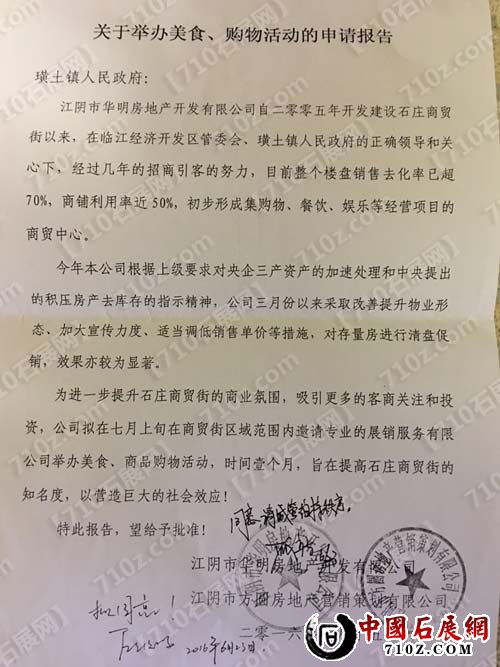 关于举办美食、购物活动的申请报告
璜土镇人民政府：
江阴市华明房地产开发有限公司自二零零五年开发建设石庄商贸
街以来，在临江经济开发区管委会、璜土镇人民政府的正确领导和关
心下，经过几年的招商引客的努力，目前整个楼盘销售去化率已超
70%，商铺利用率近 50%，初步形成集购物、餐饮、娱乐等经营项目的
商贸中心。
今年本公司根据上级要求对央企三产资产的加速处理和中央提出
的积压房产去库存的指示精神，公司三月份以来采取改善提升物业形
态、加大宣传力度、适当调低销售单价等措施，对存量房进行清盘促
销，效果亦较为显著。
为进一步提升石庄商贸街的商业氛围，吸引更多的客商关注和投
资，公司拟在七月上旬在商贸街区域范围内邀请专业的展销服务有限
公司举办美食、商品购物活动，时间壹个月，旨在提高石庄商贸街的
知名度，以营造巨大的社会效应！
特此报告，望给予批准！
同意
江阴市华明房地产开发有限公司
江阴市方圆房地产营销策划有限公司
拟同意！
二零一六
2016年6月
中国石展网
710z.com
【710z石展网】